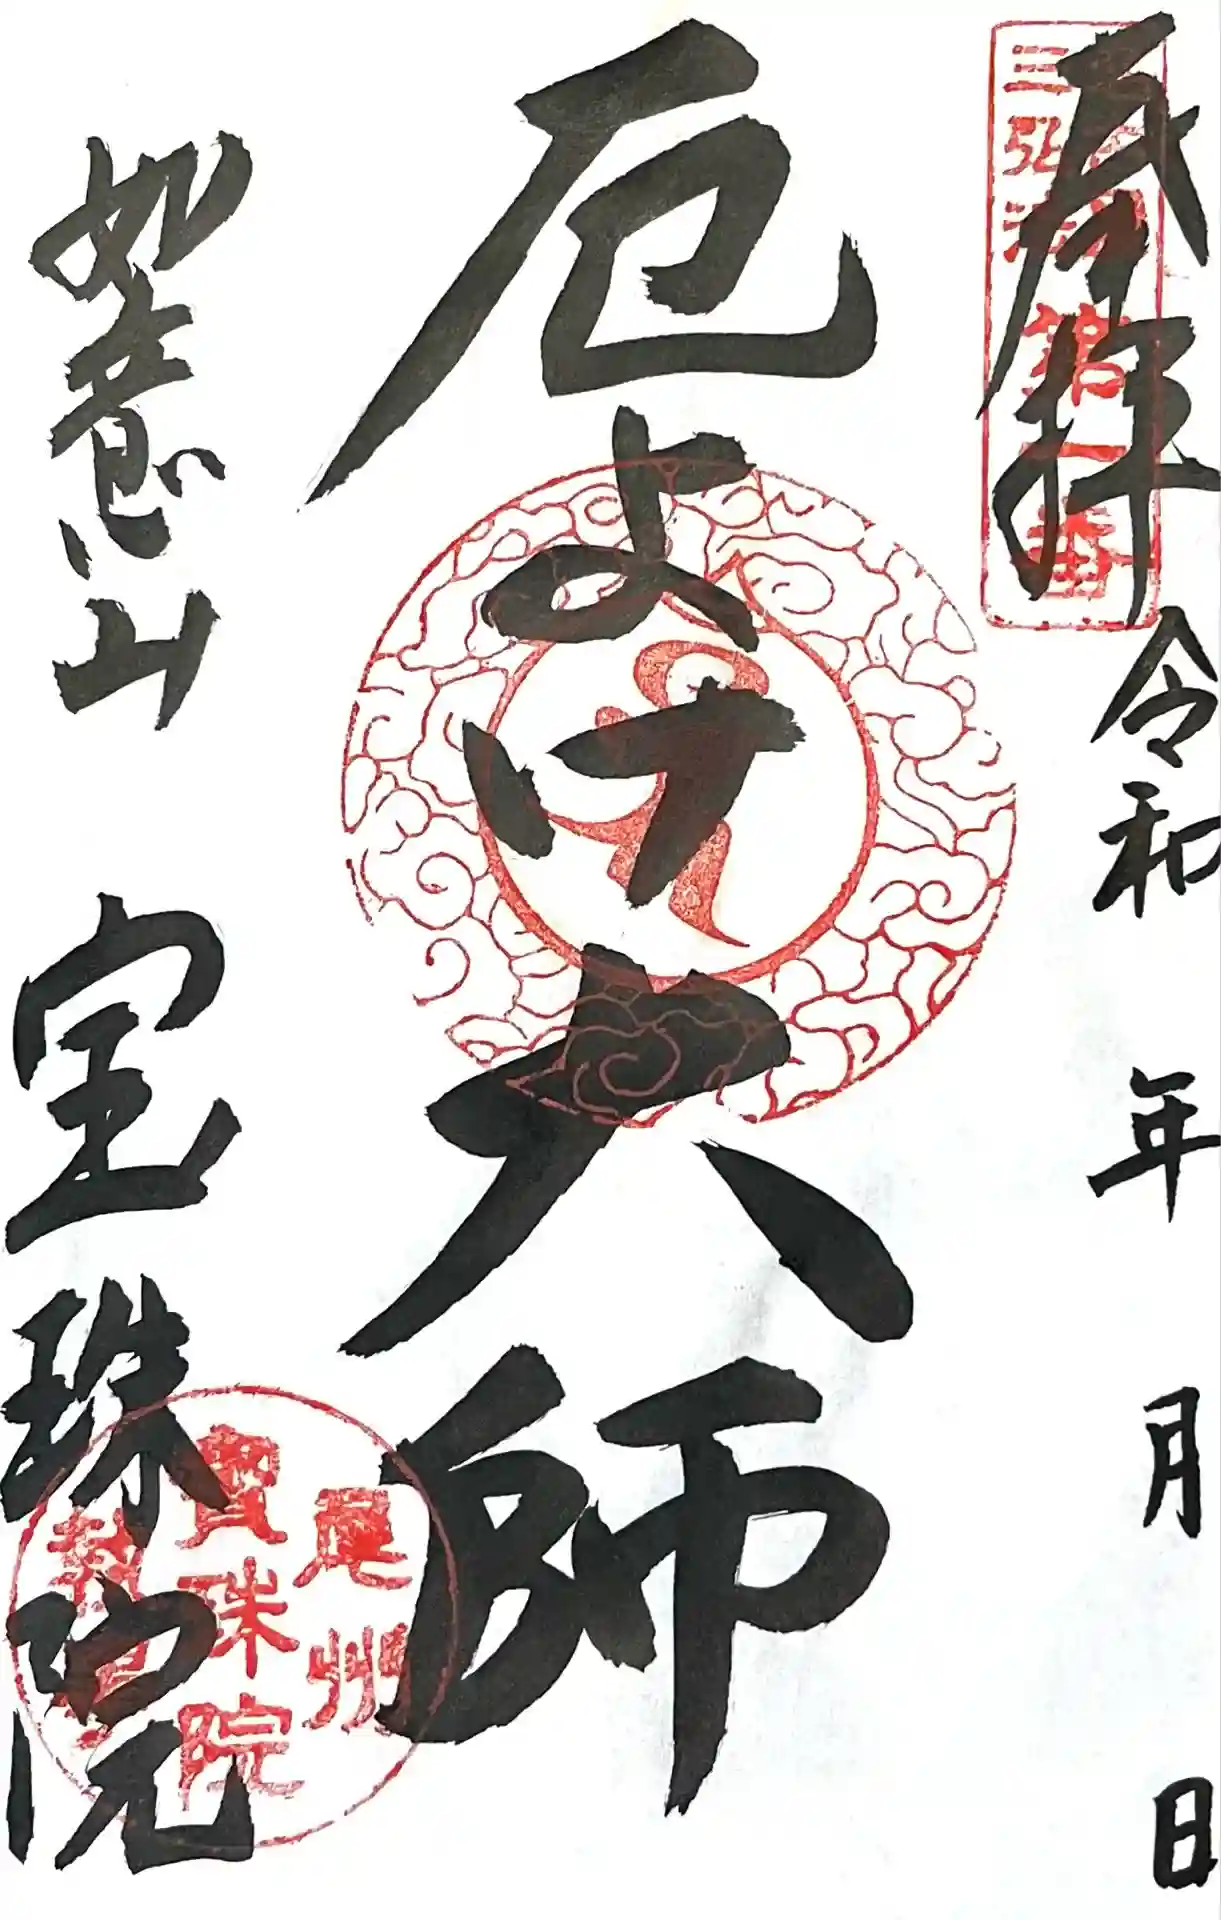 奉拝 令和 年 月 日
三弘法
一番
厄よけ大師
如意山 宝珠院
尾州
寶珠院